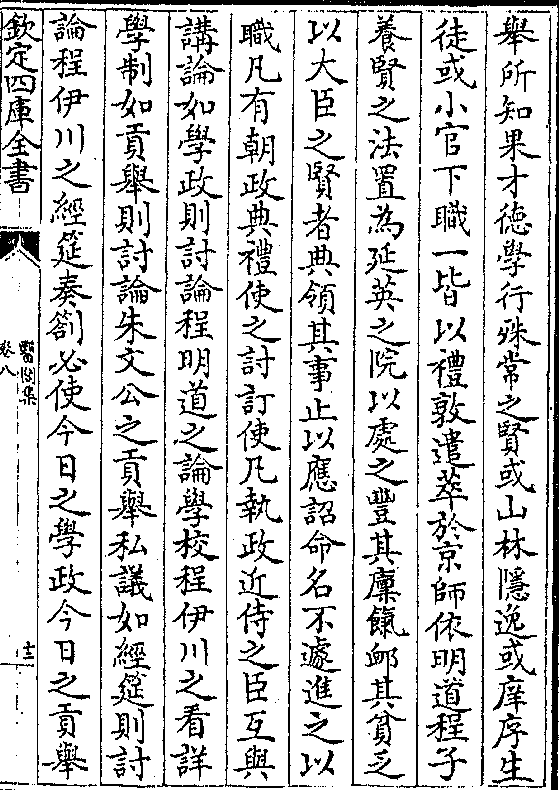 舉所知果才德學行殊常之賢或山林隱逸或庠序生
徒或小官下職一皆以禮敦遣萃於京師依明道程子
養賢之法置為延英之院以處之豐其廩餼卹其貧乏
以大臣之賢者典領其事止以應詔命名不遽進之以
職凡有朝政典禮使之討訂使凡執政近侍之臣互與
講論如學政則討論程明道之論學校程伊川之看詳
學制如貢舉則討論朱文公之貢舉私議如經筵則討
論程伊川之經筵奏劄必使今日之學政今日之貢舉
欽定四庫全書
醫閭集
卷八
十一